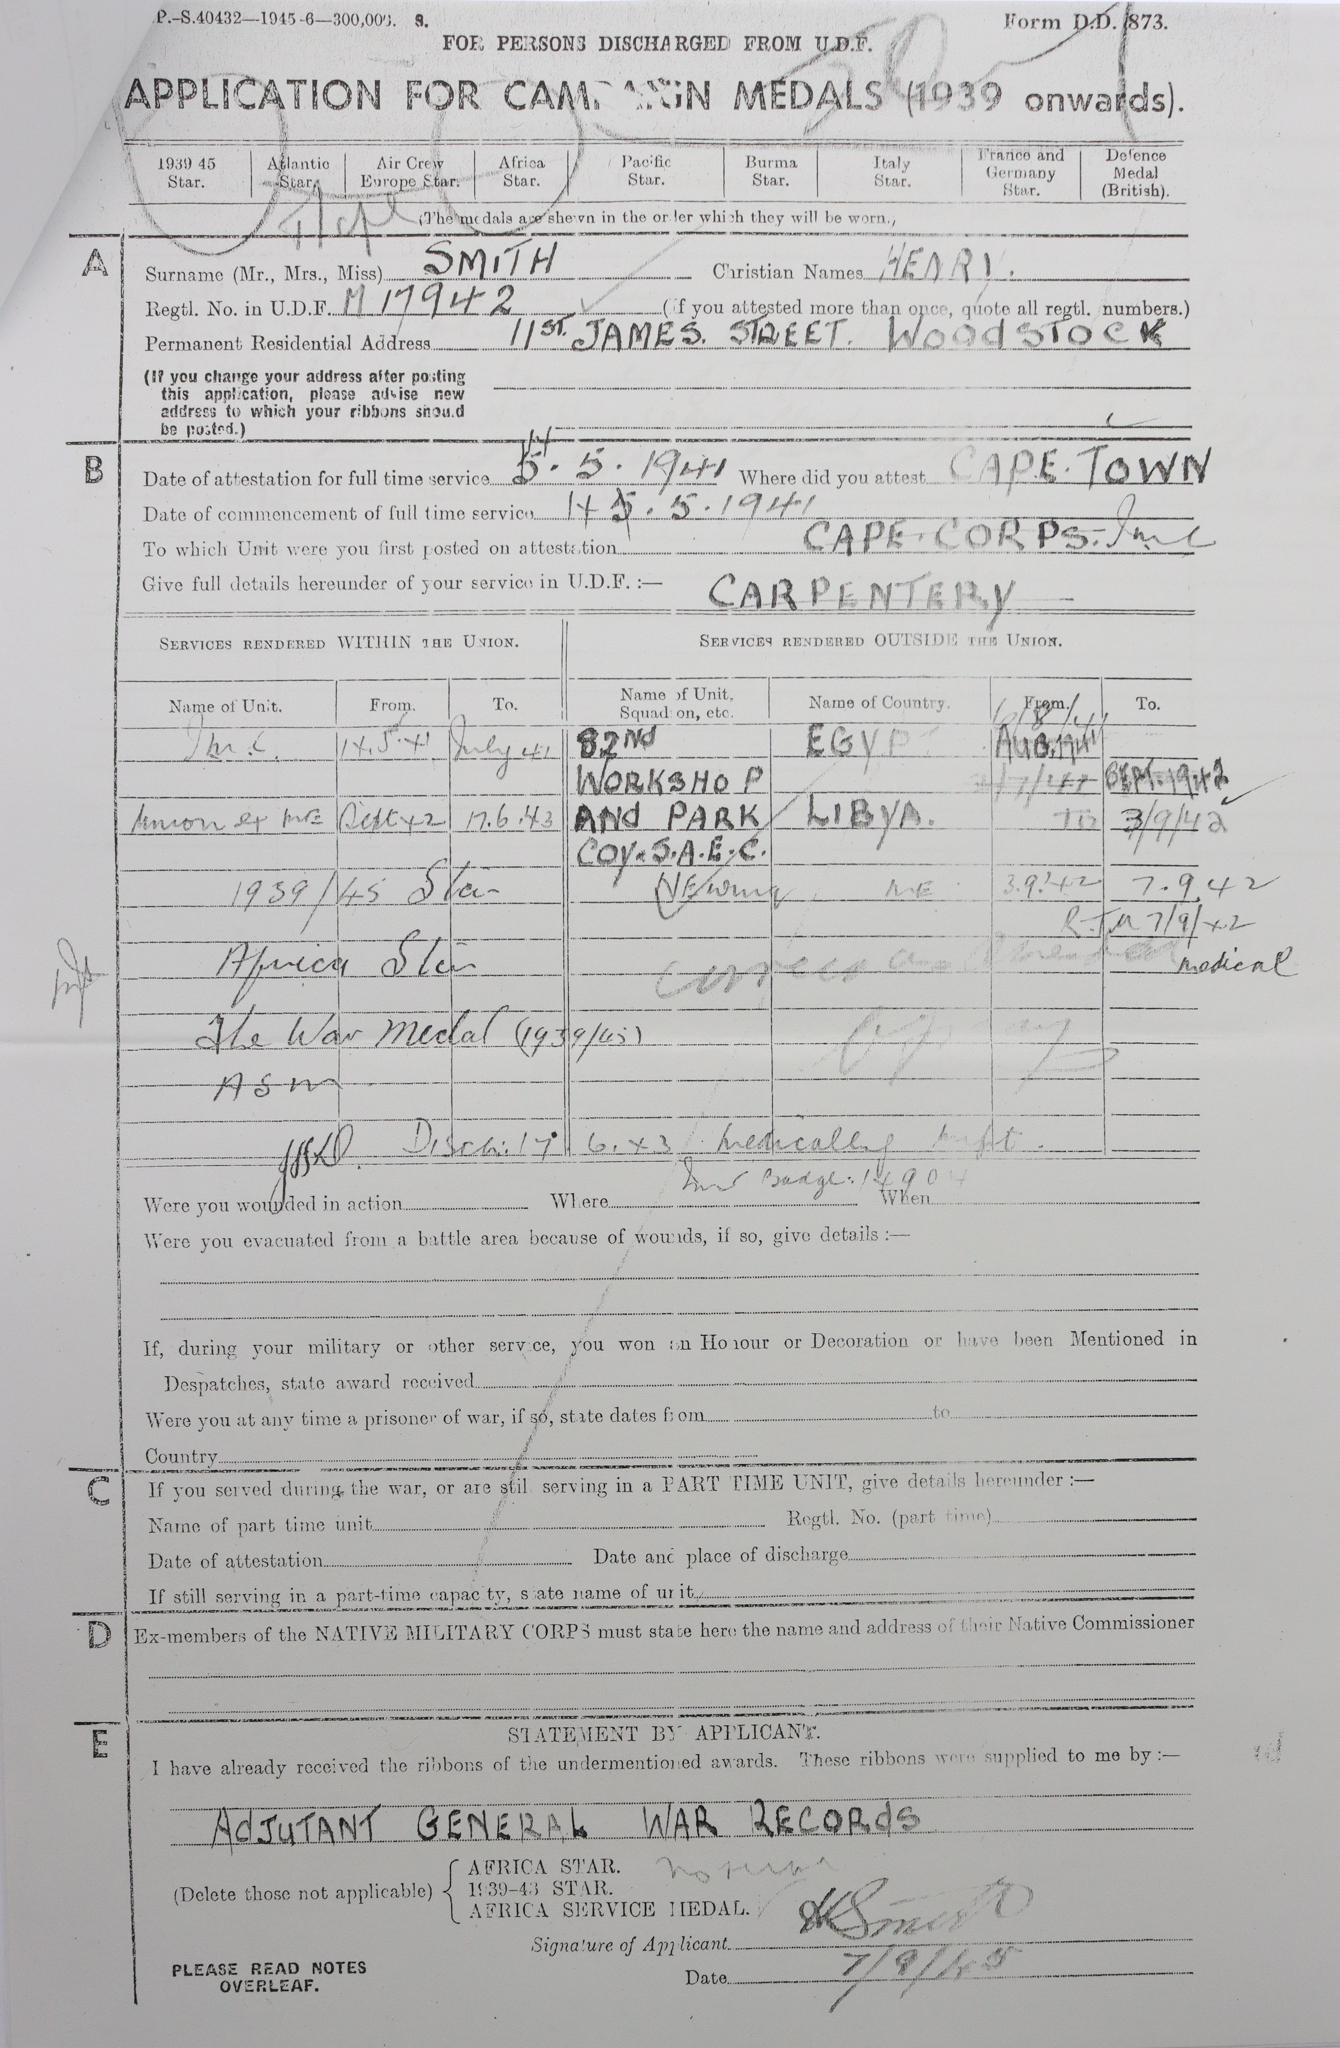 P.-S.40432—1945-6—300,000. S.
Form D.D. 873.
FOR PERSONS DISCHARGED FROM U.D.F.
APPLICATION FOR CAMPAIGN MEDALS (1939 onwards).
1939 45 Star. Atlantic Star. Air Crew Europe Star. Africa Star. Pacific Star. Burma Star. Italy Star. France and Germany Star. Defence Medal (British).
(The medals are shewn in the order which they will be worn.)
A
Surname (Mr., Mrs., Miss) SMITH Christian Names HENRY.
Regtl. No. in U.D.F. M 17942 (if you attested more than once, quote all regtl. numbers.)
Permanent Residential Address 11 ST. JAMES. STREET. WOODSTOCK
(If you change your address after posting
this application, please advise new
address to which your ribbons should
be posted.)
B
14
Date of attestation for full time service 5. 5. 1941 Where did you attest CAPE. TOWN
Date of commencement of full time service 14 5. 5. 1941
To which Unit were you first posted on attestation CAPE. CORPS.
Give full details hereunder of your service in U.D.F. :— CARPENTERY
SERVICES RENDERED WITHIN THE UNION. SERVICES RENDERED OUTSIDE THE UNION.
Name of Unit. From. To. Name of Unit, Squadron, etc. Name of Country. From. To.
14.5.41 July 41 82ND EGYPT AUG.1941
WORKSHOP SEPT. 1942
Union ex ME Sept 42 17.6.43 AND PARK LIBYA. TO 3/9/42
COY. S.A.E.C.
1939/45 Star ME 3.9.42 7.9.42
7/9/42
Africa Star medical
The War Medal (1939/45)
ASM
Disch: 17 6.43 medically unfit.
Badge: 14904
Were you wounded in action Where When
Were you evacuated from a battle area because of wounds, if so, give details :—
If, during your military or other service, you won an Honour or Decoration or have been Mentioned in
Despatches, state award received
Were you at any time a prisoner of war, if so, state dates from to
Country
C
If you served during the war, or are still serving in a PART TIME UNIT, give details hereunder :—
Name of part time unit Regtl. No. (part time)
Date of attestation Date and place of discharge
If still serving in a part-time capacity, state name of unit
D
Ex-members of the NATIVE MILITARY CORPS must state here the name and address of their Native Commissioner
E
STATEMENT BY APPLICANT.
I have already received the ribbons of the undermentioned awards. These ribbons were supplied to me by :—
ADJUTANT GENERAL WAR RECORDS
(Delete those not applicable)
AFRICA STAR.
1939–43 STAR.
AFRICA SERVICE MEDAL.
Signature of Applicant H Smith
PLEASE READ NOTES
OVERLEAF.
Date 7/9/45